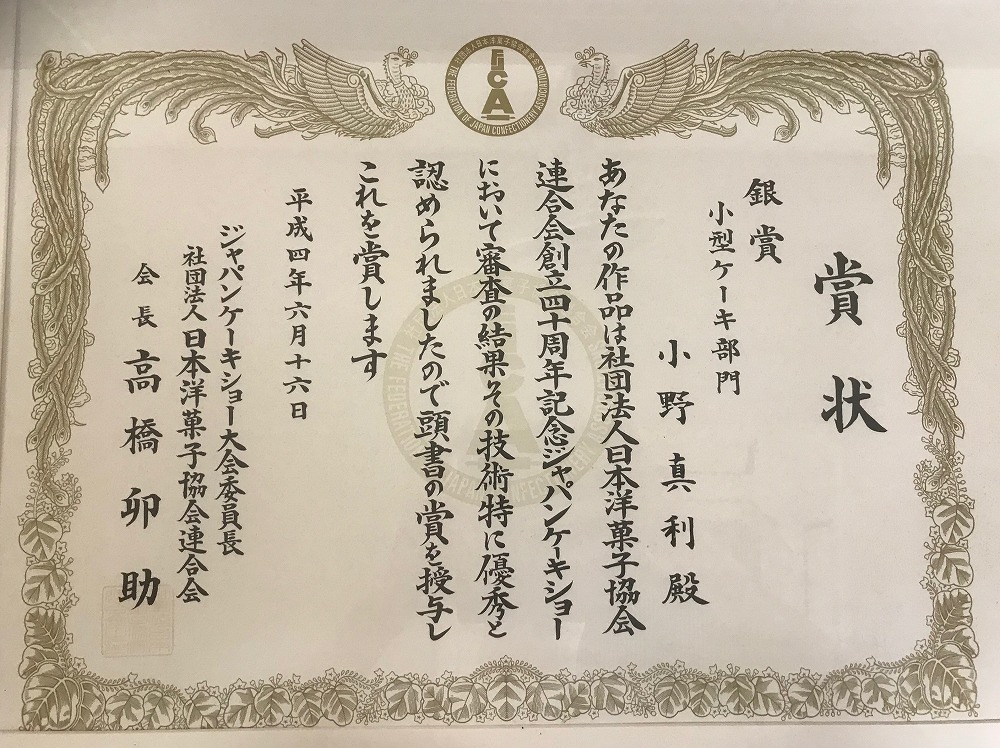 社団法人日本洋菓子協会連合会
THE FEDERATION OF JAPAN CONFECTIONERY ASSOCIATIONS
FJCA
賞状
銀賞
小型ケーキ部門
小野真利殿
あなたの作品は社団法人日本洋菓子協会
連合会創立四十周年記念ジャパンケーキショー
において審査の結果その技術特に優秀と
認められましたので頭書の賞を授与し
これを賞します
平成四年六月十六日
ジャパンケーキショー大会委員長
社団法人日本洋菓子協会連合会
会長高橋卯助